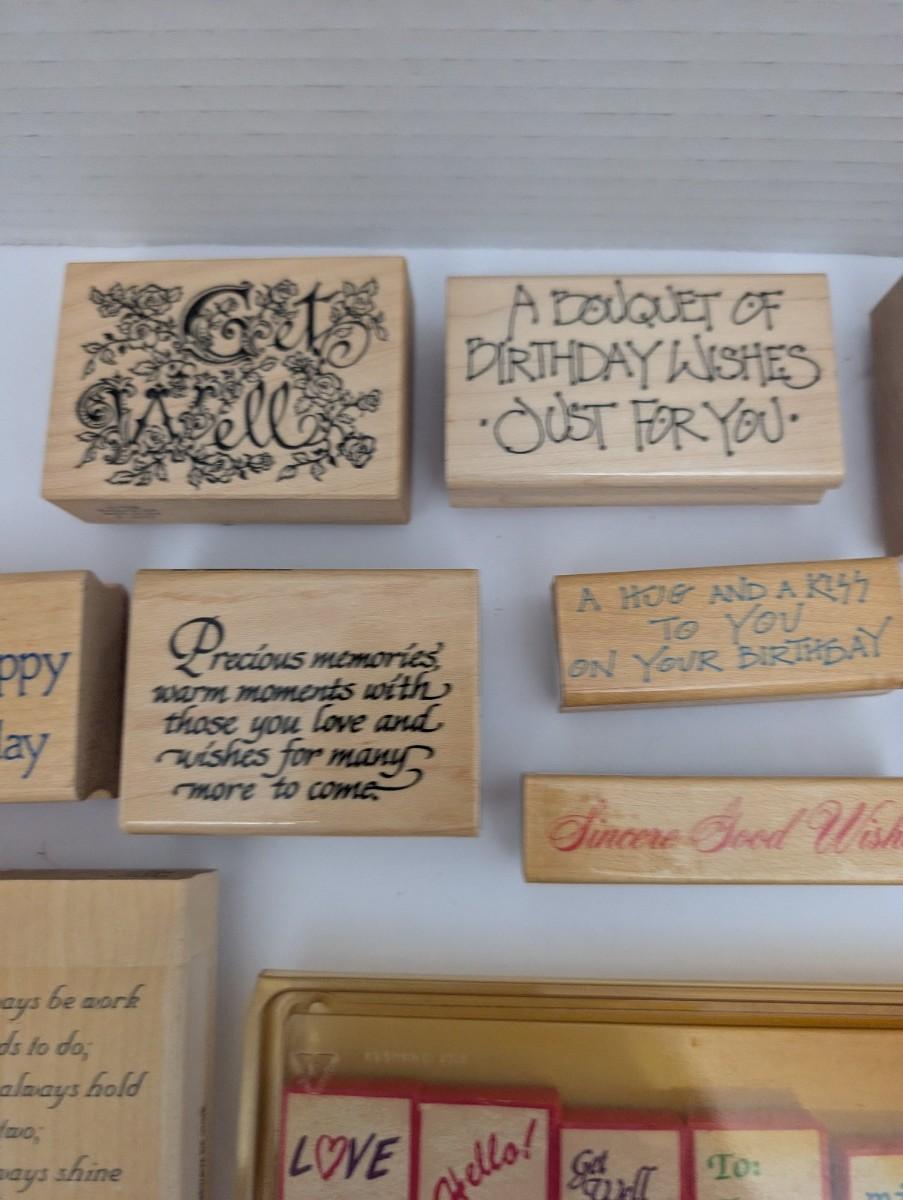 Get
Well
A BOUQUET OF
BIRTHDAY WISHES
· JUST FOR YOU ·
ppy
day
Precious memories,
warm moments with
those you love and
wishes for many
more to come.
A HUG AND A KISS
TO YOU
ON YOUR BIRTHDAY
Sincere Good Wish
ays be work
ds to do;
always hold
two;
ways shine
LOVE
Hello!
Get
Well
To: